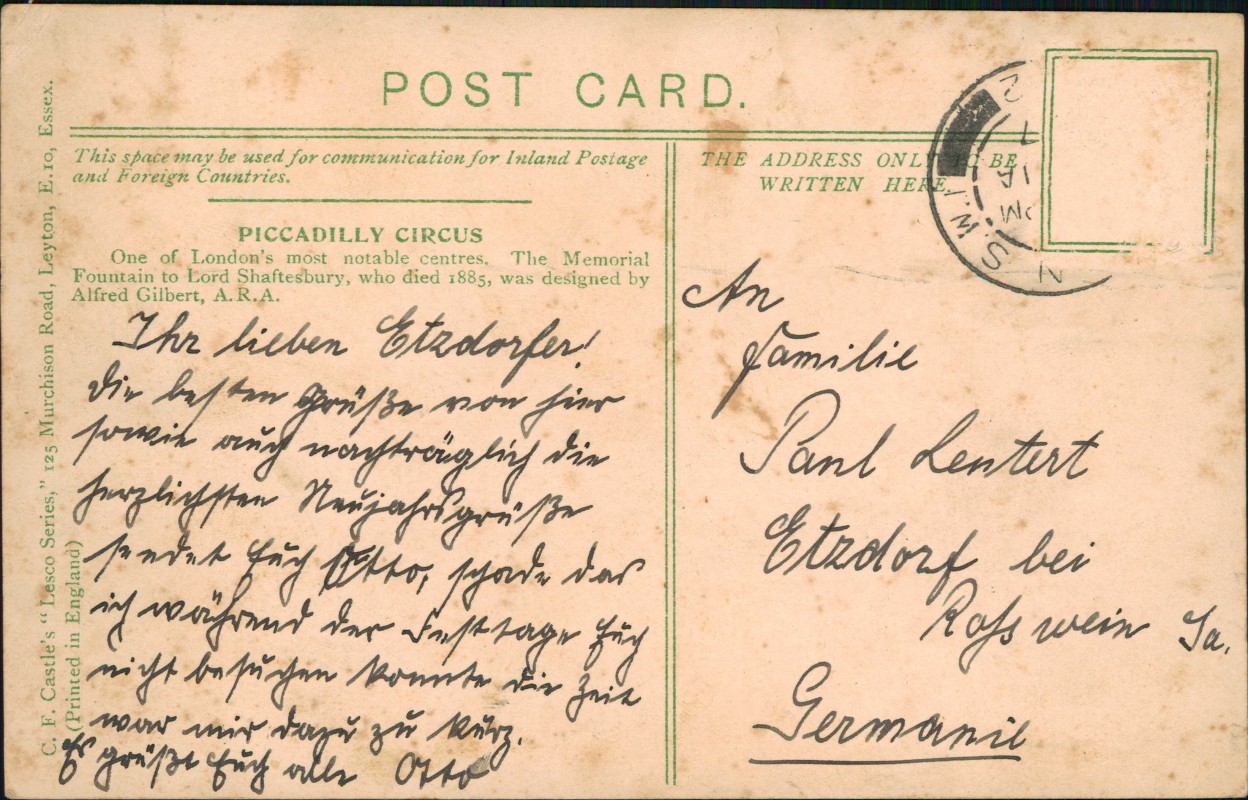 POST CARD.
This space may be used for communication for Inland Postage
and Foreign Countries.
THE ADDRESS ONLY TO BE
WRITTEN HERE
PICCADILLY CIRCUS
One of London's most notable centres. The Memorial
Fountain to Lord Shaftesbury, who died 1885, was designed by
Alfred Gilbert, A.R.A.
Ihr lieben Etzdorfer!
die besten Grüße von hier
sowie auch nachträglich die
herzlichsten Neujahrsgrüße
sendet Euch Otto, schade das
ich während der Festtage Euch
nicht besuchen konnte die Zeit
war mir dazu zu kurz.
Es grüßt Euch alle Otto
An
Familie
Paul Lentert
Etzdorf bei
Rosswein Sa.
Germanie
C. F. Castle's "Lesco Series," 125 Murchison Road, Leyton, E.10, Essex.
(Printed in England)
N
S.W.1
PM